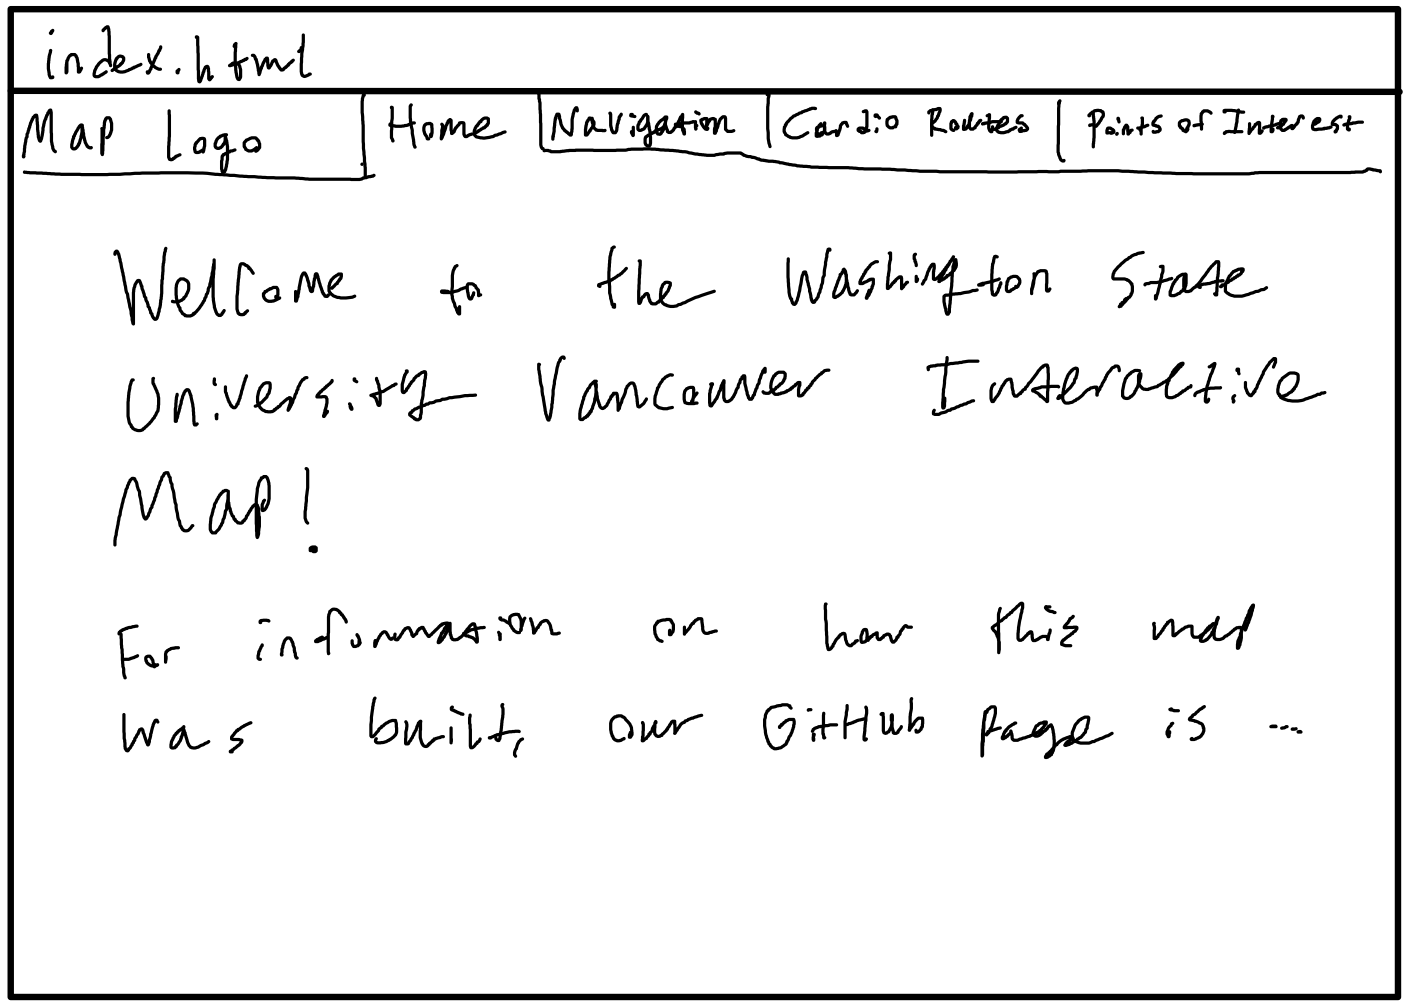 index.html
Map Logo Home Navigation Cardio Routes Points of Interest
Welcome to the Washington State
University Vancouver Interactive
Map!
For information on how this map
was built, our GitHub page is ...